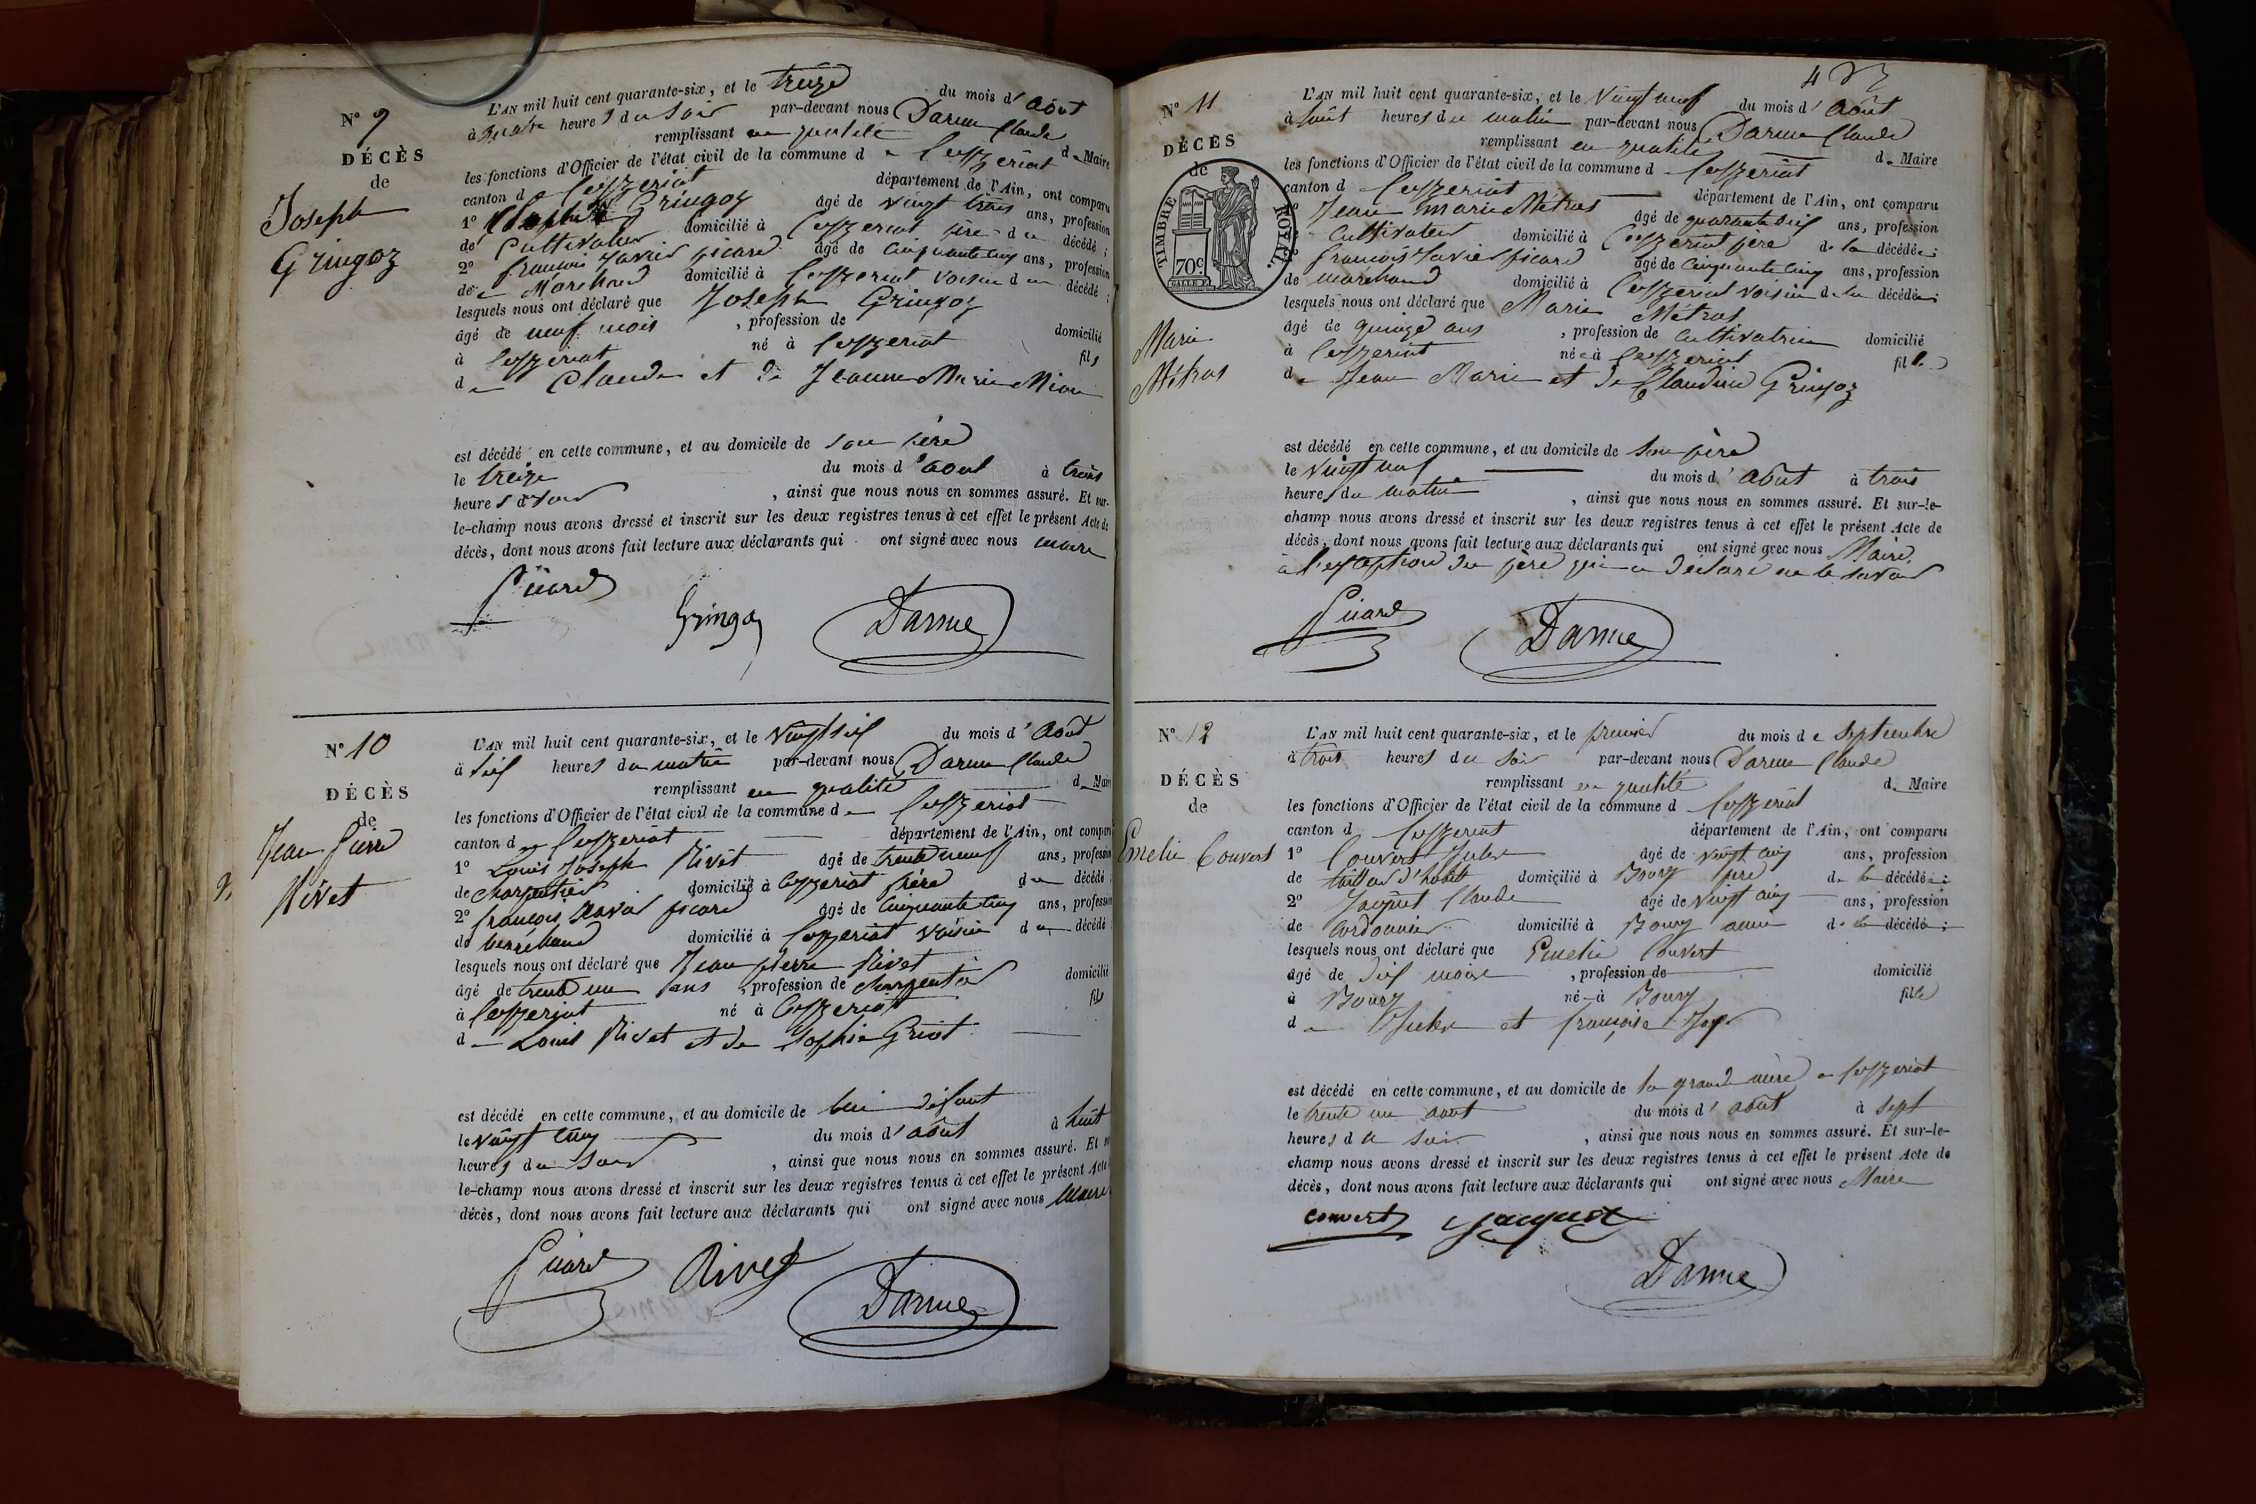 N° 9
DÉCÈS
de
Joseph
Gringoz
L'AN mil huit cent quarante-six, et le treize du mois d'Août
à quatre heures du soir par-devant nous Darme Claude
remplissant en qualité de Maire
les fonctions d'Officier de l'état civil de la commune de Ceyzeriat
canton de Ceyzeriat département de l'Ain, ont comparu
1° Gringoz âgé de vingt trois ans, profession
de Cultivateur domicilié à Ceyzeriat père du décédé ;
2° françois Xavier picard âgé de cinquante cinq ans, profession
de Marchand domicilié à Ceyzeriat voisin du décédé ;
lesquels nous ont déclaré que Joseph Gringoz
âgé de neuf mois , profession de domicilié
à Ceyzeriat né à Ceyzeriat fils
de Claude et de Jeanne Marie
est décédé en cette commune, et au domicile de son père
le treize du mois d'aout à trois
heures du soir , ainsi que nous nous en sommes assuré. Et sur-
le-champ nous avons dressé et inscrit sur les deux registres tenus à cet effet le présent Acte de
décès, dont nous avons fait lecture aux déclarants qui ont signé avec nous maire
Picard Gringoz Darme
N° 10
DÉCÈS
de
Jean Pierre
Rivet
L'AN mil huit cent quarante-six, et le vingt six du mois d'Août
à dix heures du matin par-devant nous Darme Claude
remplissant en qualité de Maire
les fonctions d'Officier de l'état civil de la commune de Ceyzeriat
canton de Ceyzeriat département de l'Ain, ont comparu
1° Louis Joseph Rivet âgé de trente neuf ans, profession
de charpentier domicilié à Ceyzeriat frère du décédé
2° françois Xavier picard âgé de cinquante cinq ans, profession
de marchand domicilié à Ceyzeriat voisin du décédé
lesquels nous ont déclaré que Jean pierre Rivet
âgé de trente un ans , profession de charpentier domicilié
à Ceyzeriat né à Ceyzeriat fils
de Louis Rivet et de Sophie Griot
est décédé en cette commune, et au domicile de lui défunt
le vingt cinq du mois d'août à huit
heures du soir , ainsi que nous nous en sommes assuré. Et
le-champ nous avons dressé et inscrit sur les deux registres tenus à cet effet le présent Acte
décès, dont nous avons fait lecture aux déclarants qui ont signé avec nous Maire
Picard Rivet Darme
N° 11
DÉCÈS
de
TIMBRE ROYAL.
70c.
Marie
Métras
L'AN mil huit cent quarante-six, et le vingt neuf du mois d'Août
à huit heures du matin par-devant nous Darme Claude
remplissant en qualité de Maire
les fonctions d'Officier de l'état civil de la commune d Ceyzeriat
canton d Ceyzeriat département de l'Ain, ont comparu
Jean Marie Métras âgé de quarante six ans, profession
Cultivateur domicilié à Ceyzeriat père de la décédée ;
françois Xavier picard âgé de cinquante cinq ans, profession
de marchand domicilié à Ceyzeriat voisin de la décédée ;
lesquels nous ont déclaré que Marie Métras
âgé de quinze ans , profession de cultivatrice domicilié
à Ceyzeriat née à Ceyzeriat fille
de Jean Marie et de Claudine Gringoz
est décédé en cette commune, et au domicile de son père
le vingt neuf du mois d'Août à trois
heures du matin , ainsi que nous nous en sommes assuré. Et sur-le-
champ nous avons dressé et inscrit sur les deux registres tenus à cet effet le présent Acte de
décès, dont nous avons fait lecture aux déclarants qui ont signé avec nous Maire,
à l'exception du père qui a déclaré ne le savoir
Picard Darme
N° 12
DÉCÈS
de
Emelie Convert
L'AN mil huit cent quarante-six, et le premier du mois de Septembre
à trois heures du soir par-devant nous Darme Claude
remplissant en qualité de Maire
les fonctions d'Officier de l'état civil de la commune d Ceyzeriat
canton d Ceyzeriat département de l'Ain, ont comparu
1° Convert Jules âgé de vingt cinq ans, profession
de tailleur d'habits domicilié à Bourg père de la décédée ;
2° Jacquet Claude âgé de vingt cinq ans, profession
de Cordonnier domicilié à Bourg ami de la décédée ;
lesquels nous ont déclaré que Emelie Convert
âgé de dix mois , profession de domicilié
à Bourg née à Bourg fille
de Jules et françoise
est décédé en cette commune, et au domicile de sa grand mère a Ceyzeriat
le trente un aout du mois d'aout à sept
heures du soir , ainsi que nous nous en sommes assuré. Et sur-le-
champ nous avons dressé et inscrit sur les deux registres tenus à cet effet le présent Acte de
décès, dont nous avons fait lecture aux déclarants qui ont signé avec nous Maire
Convert Jacquet
Darme